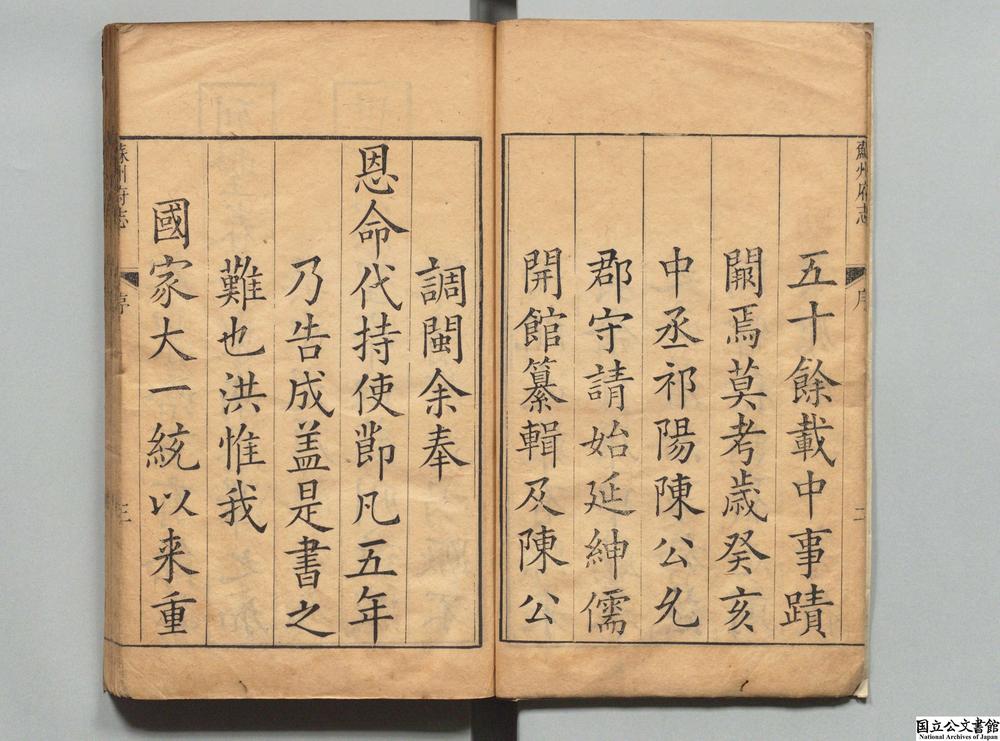 蘇州府志
序
五十餘載中事蹟
闕焉莫考歲癸亥
中丞祁陽陳公允
郡守請始延紳儒
開館纂輯及陳公
調閩余奉
恩命代持使節凡五年
乃告成盖是書之
難也洪惟我
國家大一統以来重
蘇州府志
序
三
国立公文書館
National Archives of Japan